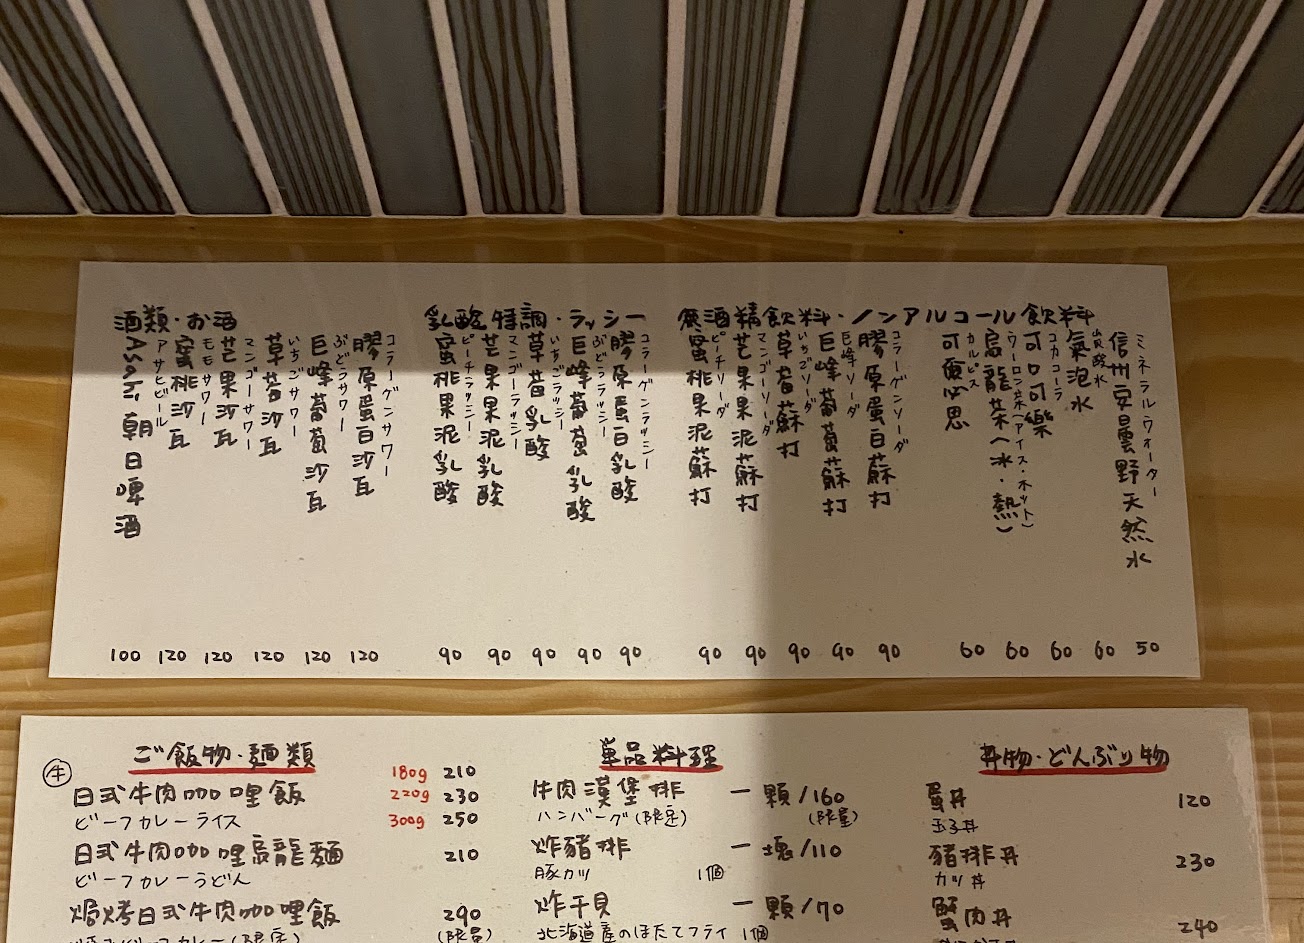 酒類・お酒
Asahi 朝日啤酒
アサヒビール
100
蜜桃沙瓦
モモサワー
120
芒果沙瓦
マンゴーサワー
120
草莓沙瓦
いちごサワー
120
巨峰葡萄沙瓦
ぶどうサワー
120
膠原蛋白沙瓦
コラーゲンサワー
120
乳酸特調・ラッシー
蜜桃果泥乳酸
ピーチラッシー
90
芒果果泥乳酸
マンゴーラッシー
90
草莓乳酸
いちごラッシー
90
巨峰葡萄乳酸
ぶどうラッシー
90
膠原蛋白乳酸
コラーゲンラッシー
90
無酒精飲料・ノンアルコール飲料
蜜桃果泥蘇打
ピーチソーダ
90
芒果果泥蘇打
マンゴーソーダ
90
草莓蘇打
いちごソーダ
90
巨峰葡萄蘇打
巨峰ソーダ
90
膠原蛋白蘇打
コラーゲンソーダ
90
可爾必思
カルピス
60
烏龍茶(冰・熱)
ウーロン茶(アイス・ホット)
60
可口可樂
コカコーラ
60
氣泡水
炭酸水
60
信州安曇野天然水
ミネラルウォーター
50
ご飯物・麵類
牛
日式牛肉咖哩飯
180g 210
220g 230
300g 250
ビーフカレーライス
日式牛肉咖哩烏龍麵 210
ビーフカレーうどん
焗烤日式牛肉咖哩飯 290
(限量)
単品料理
牛肉漢堡排 一顆/160
ハンバーグ(限定) (限量)
炸豬排 一塊/110
豚カツ 1個
炸干貝 一顆/70
北海道産のほたてフライ 1個
丼物・どんぶり物
蛋丼 120
玉子丼
豬排丼 230
カツ丼
蟹肉丼 240